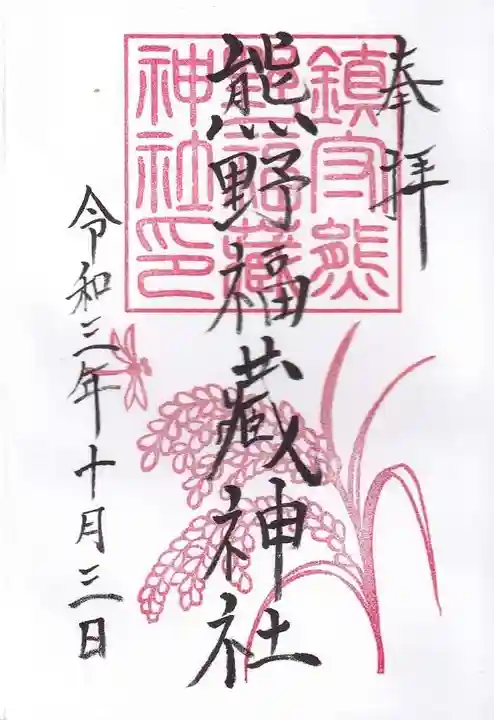 奉拝
熊野福蔵神社
令和三年十月三日
鎮守熊
野福藏
神社印